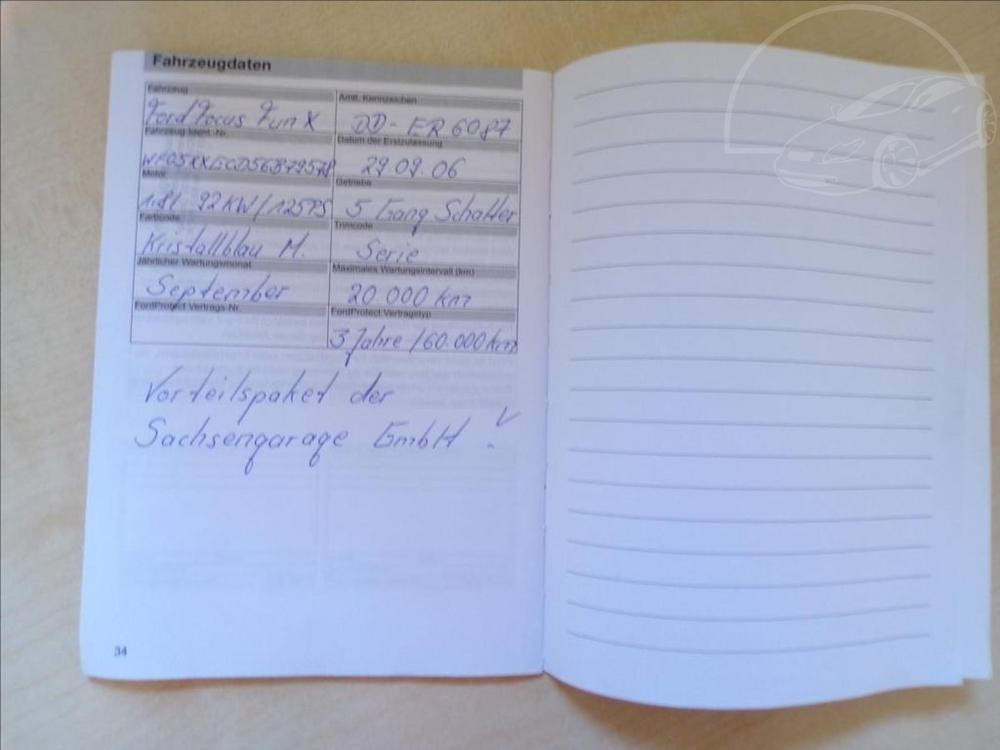 Fahrzeugdaten
Fahrzeug
Amtl. Kennzeichen
Ford Focus Fun X
DD - ER 6087
Fahrzeug Ident.-Nr.
Datum der Erstzulassung
29.09.06
Motor
Getriebe
1.8l 92KW/125PS
5 Gang Schalter
Farbcode
Trimcode
Kristallblau M.
Serie
Jährlicher Wartungsmonat
Maximales Wartungsintervall (km)
September
20.000 km
FordProtect Vertrags-Nr.
FordProtect Vertragstyp
3 Jahre /60.000km
Vorteilspaket der
Sachsengarage GmbH !
34